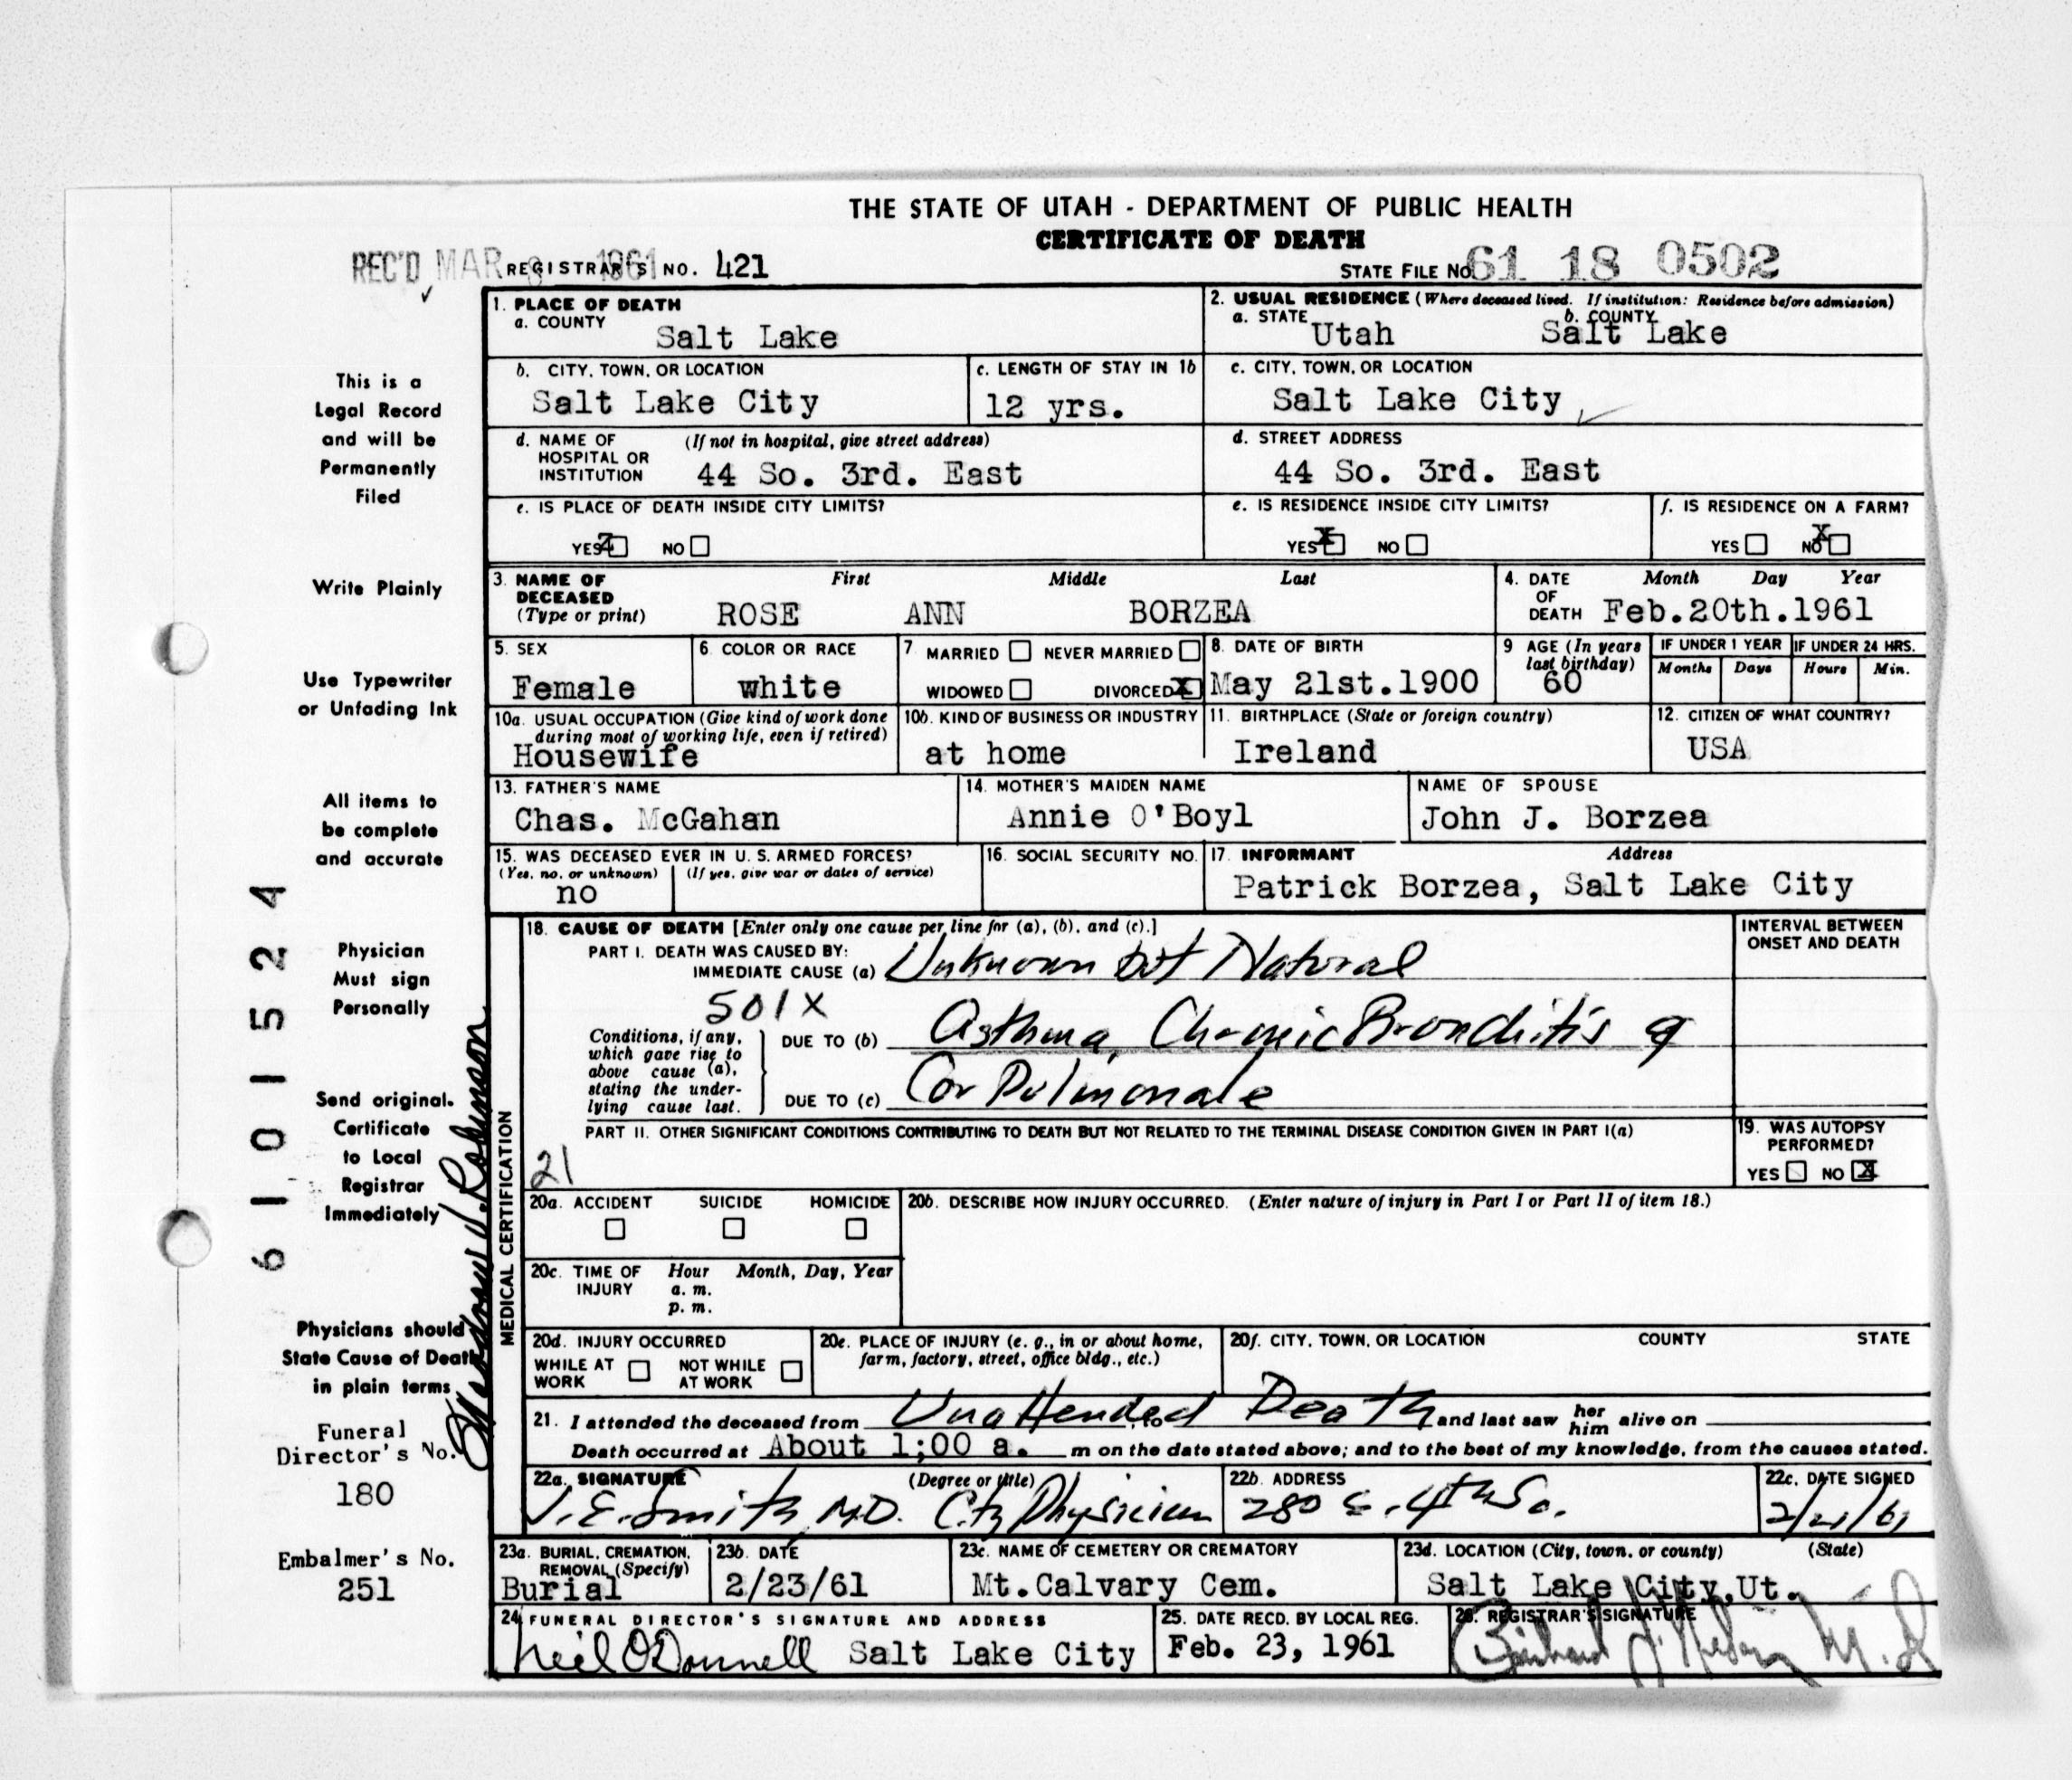 THE STATE OF UTAH - DEPARTMENT OF PUBLIC HEALTH
CERTIFICATE OF DEATH
REC'D MAR 1961 REGISTRAR'S NO. 421
STATE FILE NO. 61 18 0502
1. PLACE OF DEATH
a. COUNTY
Salt Lake
2. USUAL RESIDENCE (Where deceased lived. If institution: Residence before admission)
a. STATE Utah b. COUNTY Salt Lake
b. CITY, TOWN, OR LOCATION
Salt Lake City
c. LENGTH OF STAY IN 1b
12 yrs.
c. CITY, TOWN, OR LOCATION
Salt Lake City
d. NAME OF HOSPITAL OR INSTITUTION (If not in hospital, give street address)
44 So. 3rd. East
d. STREET ADDRESS
44 So. 3rd. East
e. IS PLACE OF DEATH INSIDE CITY LIMITS?
YES NO
e. IS RESIDENCE INSIDE CITY LIMITS?
YES X NO
f. IS RESIDENCE ON A FARM?
YES NO X
3. NAME OF DECEASED (Type or print) First Middle Last
ROSE ANN BORZEA
4. DATE OF DEATH Month Day Year
Feb.20th.1961
5. SEX
Female
6. COLOR OR RACE
white
7 MARRIED NEVER MARRIED
WIDOWED DIVORCED X
8. DATE OF BIRTH
May 21st.1900
9 AGE (In years last birthday)
60
IF UNDER 1 YEAR IF UNDER 24 HRS.
Months Days Hours Min.
10a. USUAL OCCUPATION (Give kind of work done during most of working life, even if retired)
Housewife
10b. KIND OF BUSINESS OR INDUSTRY
at home
11. BIRTHPLACE (State or foreign country)
Ireland
12. CITIZEN OF WHAT COUNTRY?
USA
13. FATHER'S NAME
Chas. McGahan
14. MOTHER'S MAIDEN NAME
Annie O'Boyl
NAME OF SPOUSE
John J. Borzea
15. WAS DECEASED EVER IN U. S. ARMED FORCES?
(Yes, no, or unknown) (If yes, give war or dates of service)
no
16. SOCIAL SECURITY NO.
17. INFORMANT Address
Patrick Borzea, Salt Lake City
18. CAUSE OF DEATH [Enter only one cause per line for (a), (b), and (c).]
PART I. DEATH WAS CAUSED BY:
IMMEDIATE CAUSE (a) Unknown but Natural
501X
Conditions, if any, which gave rise to above cause (a), stating the underlying cause last.
DUE TO (b) Asthma, Chronic Bronchitis &
DUE TO (c) Cor Pulmonale
INTERVAL BETWEEN ONSET AND DEATH
PART II. OTHER SIGNIFICANT CONDITIONS CONTRIBUTING TO DEATH BUT NOT RELATED TO THE TERMINAL DISEASE CONDITION GIVEN IN PART I(a)
21
19. WAS AUTOPSY PERFORMED?
YES NO X
20a. ACCIDENT SUICIDE HOMICIDE
20b. DESCRIBE HOW INJURY OCCURRED. (Enter nature of injury in Part I or Part II of item 18.)
20c. TIME OF INJURY Hour Month, Day, Year
a. m.
p. m.
20d. INJURY OCCURRED
WHILE AT WORK NOT WHILE AT WORK
20e. PLACE OF INJURY (e. g., in or about home, farm, factory, street, office bldg., etc.)
20f. CITY, TOWN, OR LOCATION COUNTY STATE
21. I attended the deceased from Unattended Death and last saw her him alive on
Death occurred at About 1;00 a. m on the date stated above; and to the best of my knowledge, from the causes stated.
22a. SIGNATURE (Degree or title)
J. E. Smith, M.D. City Physician
22b. ADDRESS
280 E. 4th So.
22c. DATE SIGNED
2/21/61
23a. BURIAL, CREMATION, REMOVAL (Specify)
Burial
23b. DATE
2/23/61
23c. NAME OF CEMETERY OR CREMATORY
Mt.Calvary Cem.
23d. LOCATION (City, town, or county) (State)
Salt Lake City,Ut.
24 FUNERAL DIRECTOR'S SIGNATURE AND ADDRESS
Neil O'Donnell Salt Lake City
25. DATE RECD. BY LOCAL REG.
Feb. 23, 1961
26. REGISTRAR'S SIGNATURE
MEDICAL CERTIFICATION
This is a
Legal Record
and will be
Permanently
Filed
Write Plainly
Use Typewriter
or Unfading Ink
All items to
be complete
and accurate
Physician
Must sign
Personally
Send original
Certificate
to Local
Registrar
Immediately
Physicians should
State Cause of Death
in plain terms
Funeral
Director's No.
180
Embalmer's No.
251
6101524
Robinson